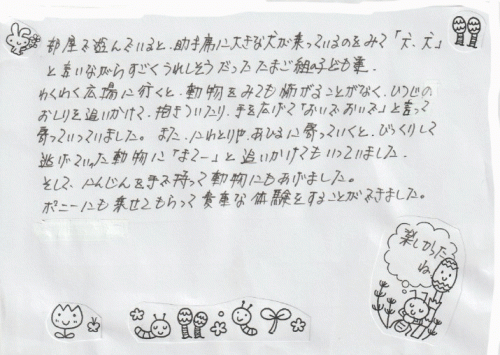 部屋で遊んでいると、助手席に大きな犬が乗っているのをみて「犬、犬」
と言いながらすごくうれしそうだったたまご組の子ども達。
わくわく広場に行くと、動物をみても怖がることがなく、ひつじの
おしりを追いかけて、抱きついたり、手を広げて「おいでおいで」と言って
寄っていっていました。また、にわとりやあひるに寄っていくと、びっくりして
逃げていった動物に「まてー」と追いかけてもいっていました。
そして、にんじんを手で持って動物にもあげました。
ポニーにも乗せてもらって貴重な体験をすることができました。
楽しかった
ね